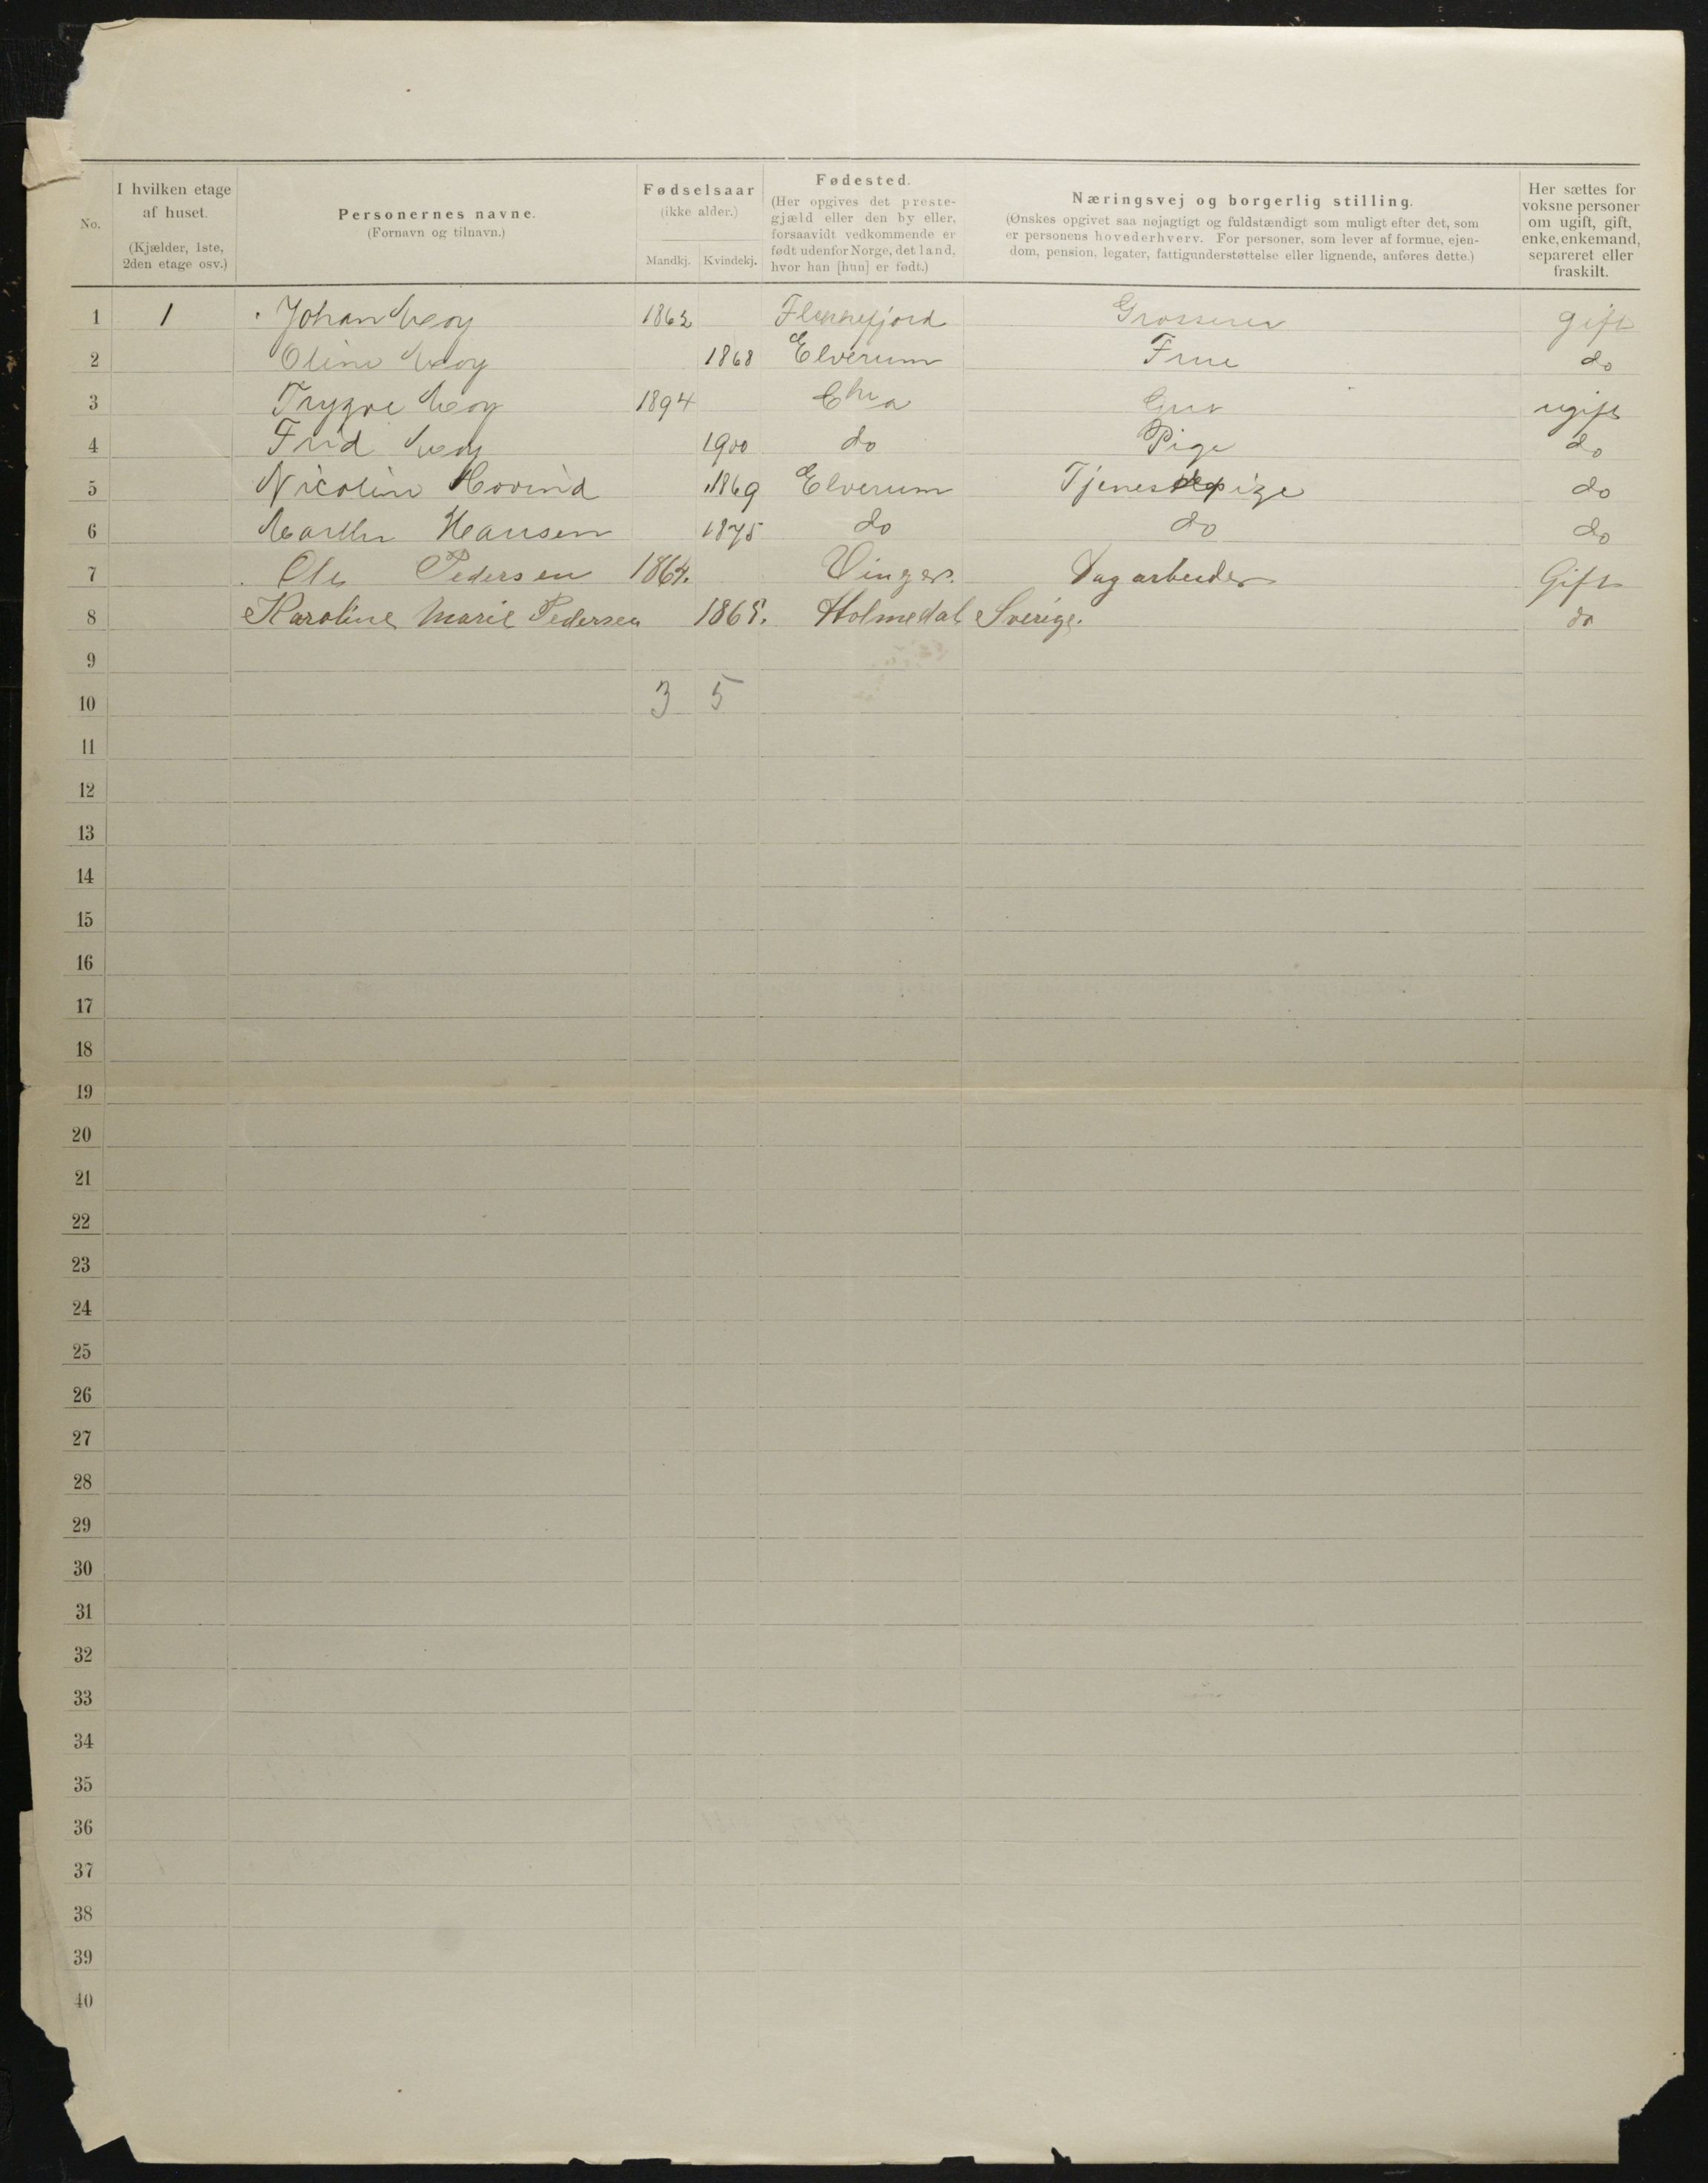 No.
I hvilken etage af huset.
(Kjælder, 1ste, 2den etage osv.)
Personernes navne.
(Fornavn og tilnavn.)
Fødselsaar
(ikke alder.)
Mandkj. Kvindekj.
Fødested.
(Her opgives det preste-
gjæld eller den by eller,
forsaavidt vedkommende er
født udenfor Norge, det land,
hvor han [hun] er født.)
Næringsvej og borgerlig stilling.
(Ønskes opgivet saa nøjagtigt og fuldstændigt som muligt efter det, som
er personens hovederhverv. For personer, som lever af formue, ejen-
dom, pension, legater, fattigunderstøttelse eller lignende, anføres dette.)
Her sættes for
voksne personer
om ugift, gift,
enke, enkemand,
separeret eller
fraskilt.
1 1 Johan 1862 Flekkefjord Grosserer gift
2 Oline 1868 Elverum Frue do
3 Trygve 1894 Chra ugift
4 Frid 1900 do Pige do
5 Nicoline Hovind 1869 Elverum Tjenestepige do
6 Martha Hansen 1875 do do do
7 Ole Pedersen 1864. Vinger. Dagarbeider Gift
8 Karoline Marie Pedersen 1865. Holmedal, Sverige. do
9
10 3 5
11
12
13
14
15
16
17
18
19
20
21
22
23
24
25
26
27
28
29
30
31
32
33
34
35
36
37
38
39
40